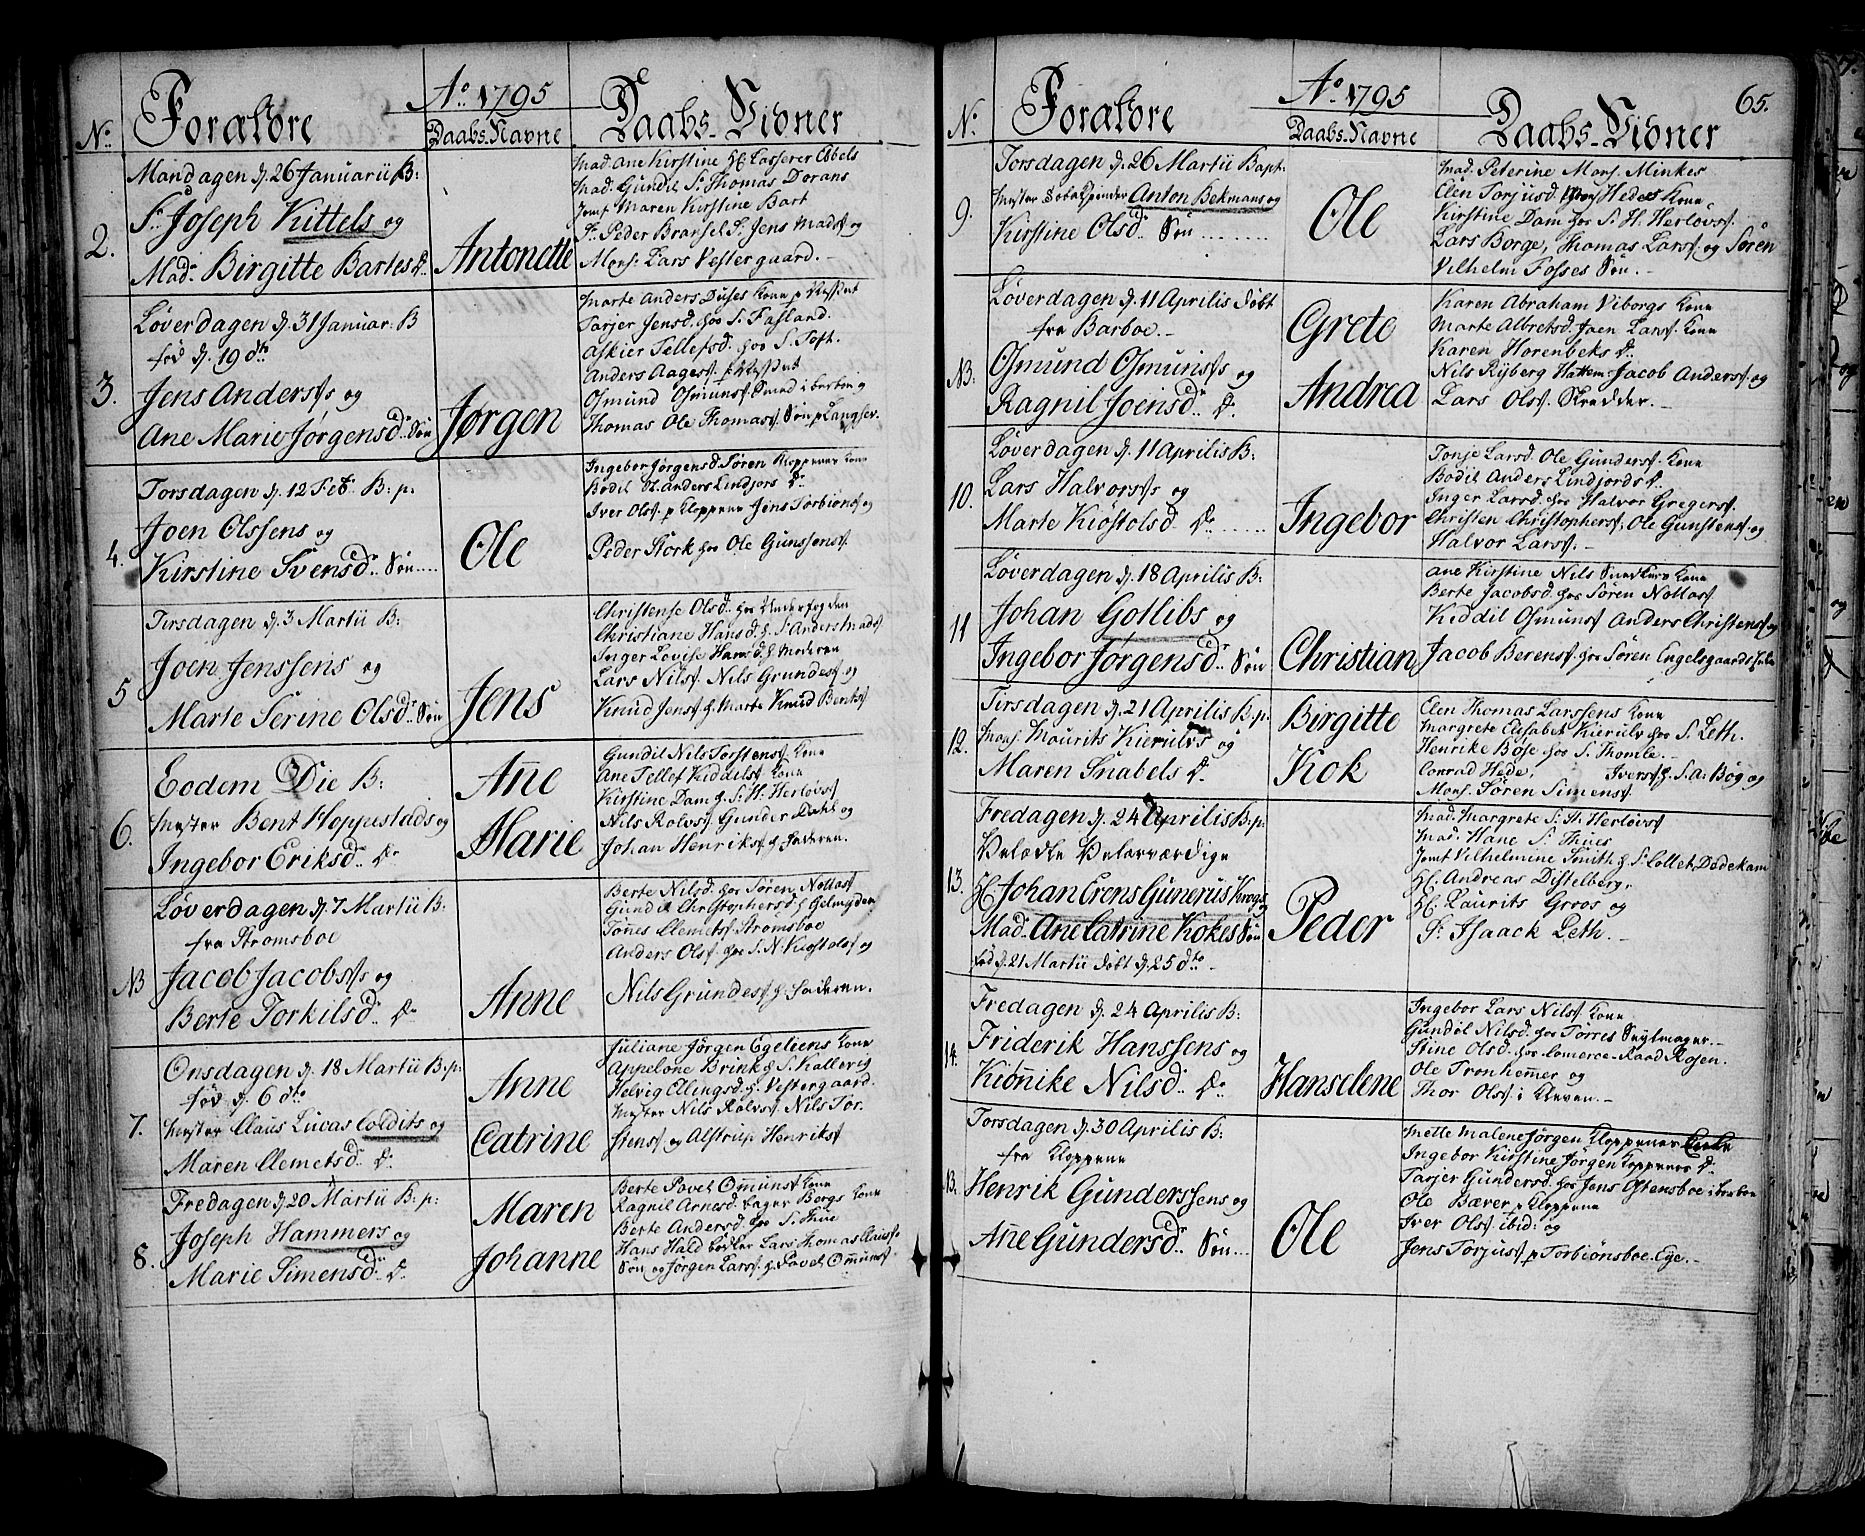 Ao. 1795
No. Forældre Daabs-Navne Daabs-Vidner
2.
Mandagen d. 26 Januarii B:
Sr. Joseph Kittels og
Mad. Birgitte Bartes Dr.
Antonette
Mad. Ane Kirstine Hr. Casserer Abels
Mad. Gundil Sr. Thomas Dorans
Jomf. Maren Kirstine Bart
Sr. Peder Sr. Jens Mads. og
Mons. Lars Vestergaard.
3.
Løverdagen d. 31 Januar. B
fød d. 19 dto
Jens Anderss. og
Ane Marie Jørgensd. Søn
Jørgen
Marte Anders Duses Kone
Tarjer Jensd. hos S. Fasland.
Askier Tellefsd. hos S. Toft.
Anders Aages.
Osmund Osmuns. Smed i
Thomas Ole Thomas. Søn p Langser.
4.
Torsdagen d. 12 Feb. B: p:
Joen Olssens og
Kirstine Svensd. Søn....
Ole
Ingebor Jørgensd. Søren Kloppene Kone
Bodil Anders Lindjors Dr.
Iver Ols. p Kloppene Jens Torbiøns. og
Peder Stork hos Ole Gunssens.
5
Tirsdagen d. 3 Martii B:
Joen Jenssens og
Marte Serine Olsd. Søn
Jens
Christense Olsd. hos
Christiane Hansd. h. S. Anders Mads.
Inger Lovise Hansd. h. Moderen
Lars Nils. Nils Grundes. og
Knud Jens. h. Marte Knud Bents.
6.
Eodem Die B:
Mester Bent Hoppestads og
Ingebor Eriksd. Dr.
Ane
Marie
Gundil Nils Torstens. Kone
Ane Tellef Kiddels. Kone
Kirstine Dam h. S. H. Herløvs.
Nils Rolvs. Gunder Dahl og
Johan Henriks. h. Faderen.
NB
Løverdagen d. 7 Martii B:
fra Strømsboe
Jacob Jacobss. og
Berte Torkilsd. Dr.
Anne
Berte Nilsd. hos Søren Nottas.
Gundil Christophersd. h. Gelmyden
Tønes Clemets. Strømsboe
Anders Ols. hos S. N. Kiøstols. og
Nils Grundes. h. Faderen.
7.
Onsdagen d. 18 Martii B: p:
fød d. 6 dto
Mester Claus Lucas Coldits og
Maren Clemetsd. Dr.
Anne
Catrine
Juliane Jørgen Egeliens Kone
Appelone Brink h. S. Kallevig
Helvig Ellingsd. h. Vestergaard.
Mester Nils Rolvs. Nils Tor-
stens. og Alstrup Henriks.
8.
Fredagen d. 20 Martii B: p:
Joseph Hammers og
Marie Simensd. Dr.
Maren
Johanne
Berte Povel Omuns. Kone
Ragnil Arnesd. Bager Borgs Kone
Berte Andersd. hos S. Thue
Hans Hald Lars Thomas Claus.
Søn og Jørgen Lars. h. Povel Omuns.
65.
Ao. 1795
No. Forældre Daabs-Navne Daabs-Vidner
9.
Torsdagen d. 26 Martii Bapt:
Mester Anton Bekmans og
Kirstine Olsd. Søn........
Ole
Mad. Peterine Mons. Minkes
Elen Torjusd. Hedes Kone
Kirstine Dam hos S. H. Herløvs.
Lars Borge, Thomas Lars. og Søren
Vilhelm Fosses Søn.
NB:
Løverdagen d. 11 Aprilis døbt
fra Barboe.
Osmund Osmuns. og
Ragnil Joensd. Dr.
Grete
Andrea
Karen Abraham Viborgs Kone
Marte Albretsd. Joen Lars. Kone
Karen Horenbeks Dr.
Nils Ryberg Jacob Anders. og
Lars Ols. Skredder.
10.
Løverdagen d. 11 Aprilis B:
Lars Halvorss. og
Marte Kiøstolsd. Dr......
Ingebor
Tonje Larsd. Ole Gunders. Kone
Bodil Anders Lindjords Dr.
Inger Larsd. hos Halvor Gregers.
Christen Christophers. Ole Gunstens. og
Halvor Lars.
11
Løverdagen d. 18 Aprilis B:
Johan Gotlibs og
Ingebor Jørgensd. Søn
Christian
Ane Kirstine Nils Kone
Berte Jacobsd. hos Søren Nottas.
Kiddil Osmuns. Anders Christens. og
Jacob Berens. hos Søren Engelsgaards
12.
Tirsdagen d. 21 Aprilis B: p:
Mons. Maurits Kierulvs og
Maren Snabels Dr.
Birgitte
Kok
Elen Thomas Larssens Kone
Margrete Elisabet Kierulv hos S. Leth.
Henrike Bøse hos S. Thomle.
Conrad Hede, Ivers. h. S. A: Bøg og
Mons. Søren Simens.
13.
Fredagen d. 24 Aprilis B: p:
Velædle Velærværdige
Hr. Johan Erens Gunerus Krogs og
Mad. Ane Catrine Kokes Søn
Fød d. 21 Martii døbt d. 25 dto
Peder
Mad. Margrete S. H. Herløvs.
Mad. Hane S. Thues
Jomf. Vilhelmine Smith h. S. Collet, Dødekam
Hr. Andreas Distelberg,
Hr. Laurits Groos og
Sr. Isaack Leth.
14.
Fredagen d. 24 Aprilis B:
Friderik Hanssens og
Kiønike Nilsd. Dr.
Hanselene
Ingebor Lars Nils. Kone
Gundøl Nilsd. hos Tørres Seylmager.
Stine Olsd. hos Comerce-Raad Rosen.
Ole Tronhemer og
Thor Ols. i Kleven.
Torsdagen d. 30 Aprilis B:
fra Kloppene
Henrik Gunderssens og
Ane Gundersd. Søn...
Ole
Mette Malene Jørgen Kloppenes
Ingebor Kirstine Jørgen Koppenes Dr.
Tarjer Gundersd. hos Jens Ostensboe i
Ole Bærer p Kloppene
Iver Ols. ibid: og
Jens Torjus. p Torbiønsboe-Eye.